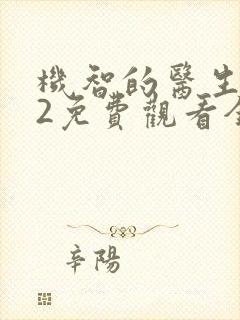 機智的醫生
2免費觀看全
辛陽